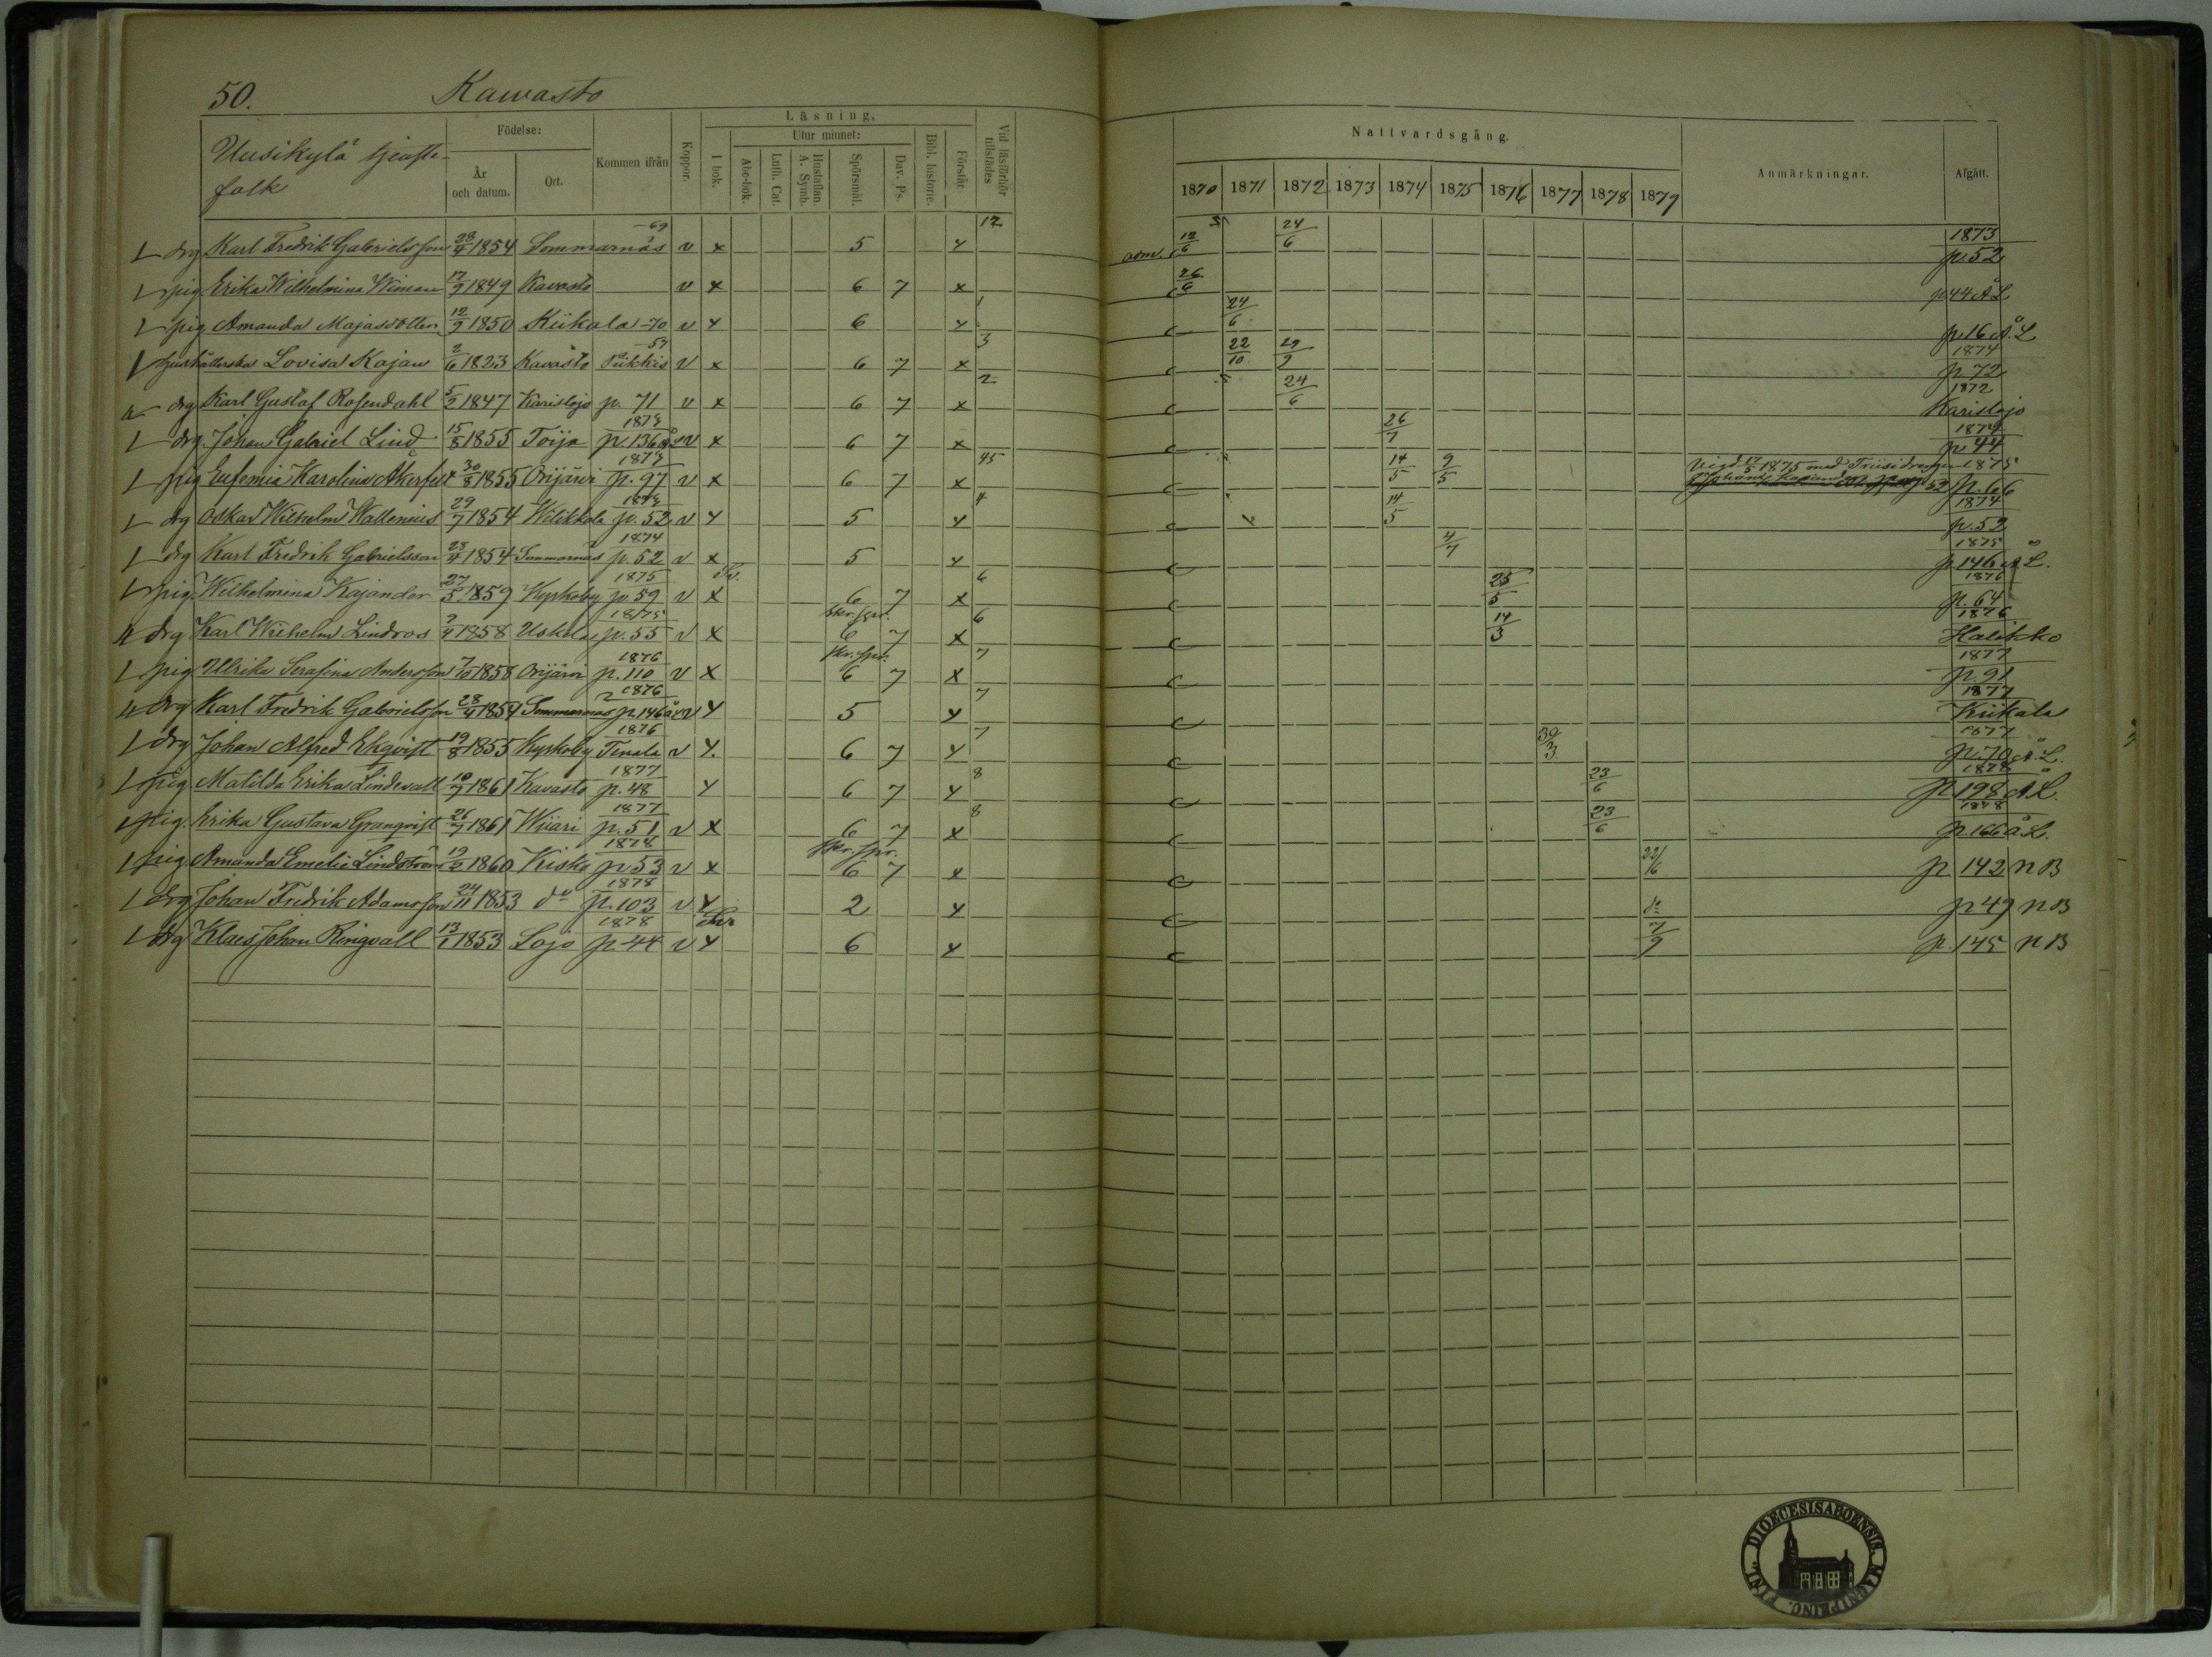 50.
Kawasto
Uusikylä tjenste-
folk
Födelse:
År
och datum.
Ort.
Kommen ifrån
Koppor.
Läsning,
I bok.
Utur minnet:
Abc-bok.
Luth. Cat.
Hustaflan.
A. Symb.
Spörsmål.
Dav. Ps.
Bibl. historie.
Förstår
Vid läsförhör
tillstädes
Nattvardsgång.
1870 1871 1872 1873 1874 1875 1876 1877 1878 1879
Anmärkningar.
Afgått.
drg Karl Fredrik Gabrielsson 28/4 1854 Sommarnäs -69 v x 5 x 12 adm. 12/6 24/6 1873 p. 52
pig Erika Wilhelmina Wiman 17/9 1849 Kavasto v x 6 7 x 26/6 p 44 ÅL
pig Amanda Majasdotter 12/9 1850 Kiikala -70 v x 6 x 1 24/6 p. 16 Å.L
Lovisa Kajan 2/6 1823 Kavasto v x 6 7 x 3 22/10 29/9 1874 p. 72
drg Karl Gustaf Rosendahl 5/2 1847 Karislojo p. 71 v x 6 7 x 2 24/6 1872 Karislojo
drg. Johan Gabriel Lind 15/8 1855 Toija 1873 p. 136 v x 6 7 x 26/7 1874 p. 44
pig Eufemia Karolina Åkerfelt 30/8 1855 Orijärvi 1873 p. 97 v x 6 7 x 45 14/5 9/5 Vigd 17/5 1875 med 1875 p. 66
drg Oskar Wilhelm Wallenius 29/7 1854 Wilikkala 1873 p. 52 v x 5 x 4 14/5 1874 p. 52
drg Karl Fredrik Gabrielsson 28/4 1854 Sommarnäs 1874 p. 52 v x 5 x 4/7 1875 p 146 Å L.
pig. Wilhelmina Kajander 27/5 1859 Kyrkoby 1875 p. 59 v x 6 7 x 6 25/5 1876 p. 64
drg Karl Wilhelm Lindros 1858 Uskela 1875 p. 55 v x 6 7 x 6 14/3 1876 Halikko
pig Ulrika Serafina Andersson 7/10 1858 Orijärvi 1876 p. 110 v x 6 7 x 7 1877 p. 91
drg Karl Fredrik Gabrielsson 28/4 1854 Sommarnäs 1876 p. 146 v x 5 x 7 1877 Kiikala
drg Johan Alfred Ekqvist 19/8 1855 Kyrkoby 1876 Tenala v x. 6 7 x 7 30/3 1877 p. 70 Å.L.
pig Matilda Erika Lindevall 10/9 1861 Kavasto 1877 p. 48 x 6 7 x 8 23/6 1878 p 198 ÅL.
pig. Erika Gustava Granqvist 26/7 1861 Wiiari 1877 p. 51 v x 6 7 x 8 23/6 1878 p. 166 ÅL.
pig Amanda Emelie Lindström 19/2 1860 Kisko 1878 p 53 v x 6 7 x 22/6 p 142 NB
drg Johan Fredrik Adamsson 24/11 1853 do 1878 p. 103 v x 2 x do p 49 NB
drg Klaes Johan Ringvall 13/1 1853 Lojo 1878 p. 44 v x 6 x 7/9 p. 145 NB
DIOECESIS ABOENSIS. MAGNI PRINC. FINL.